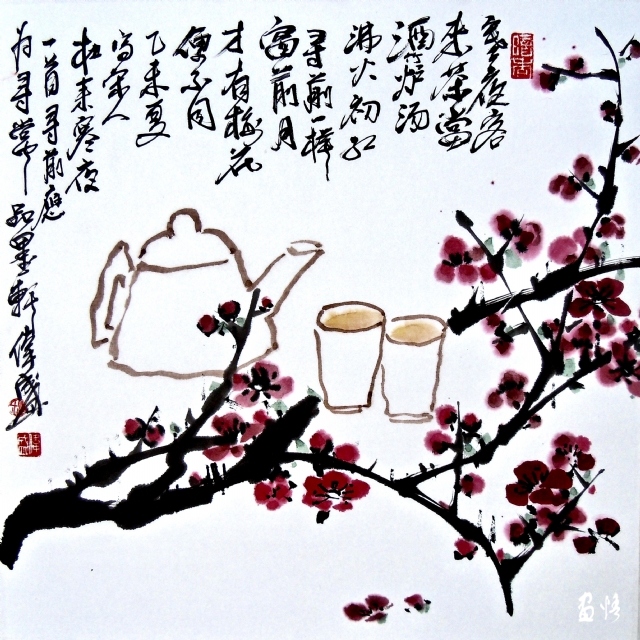 寒夜客
来茶当
酒竹炉汤
沸火初红
寻常一样
窗前月
才有梅花
便不同
乙未夏
写宋人
杜耒寒夜
一首
品墨轩伟盛